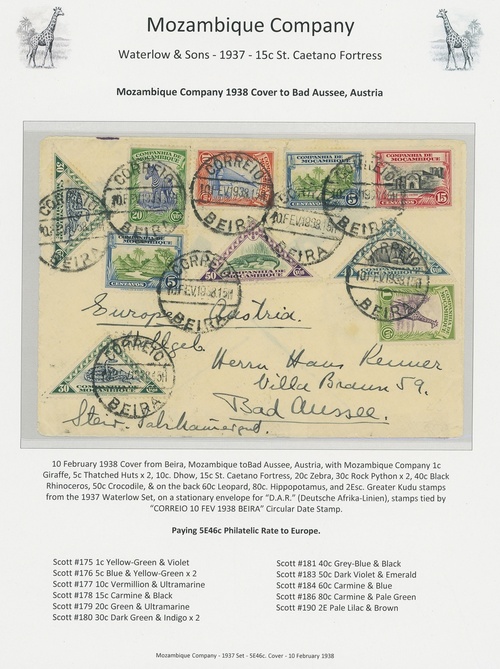 Mozambique Company
Waterlow & Sons - 1937 - 15c St. Caetano Fortress
Mozambique Company 1938 Cover to Bad Aussee, Austria
COMPANHIA DE MOÇAMBIQUE
20
COMPANHIA DE MOÇAMBIQUE
5
CENTAVOS
COMPANHIA DE MOÇAMBIQUE
CENTAVOS 15
CORREIO
10.FEV.1938.15H
BEIRA
CORREIO
10.FEV.1938.15H
BEIRA
5
CENTAVOS
50 COMPANHIA DE MOÇAMBIQUE
CORREIO
10.FEV.1938.15H
BEIRA
CORREIO
BEIRA
30
CORREIO
BEIRA
Europe Austria.
Herrn Hans Renner
Villa Braun 59.
Bad Aussee.
10 February 1938 Cover from Beira, Mozambique toBad Aussee, Austria, with Mozambique Company 1c
Giraffe, 5c Thatched Huts x 2, 10c. Dhow, 15c St. Caetano Fortress, 20c Zebra, 30c Rock Python x 2, 40c Black
Rhinoceros, 50c Crocodile, & on the back 60c Leopard, 80c. Hippopotamus, and 2Esc. Greater Kudu stamps
from the 1937 Waterlow Set, on a stationary envelope for “D.A.R.” (Deutsche Afrika-Linien), stamps tied by
“CORREIO 10 FEV 1938 BEIRA” Circular Date Stamp.
Paying 5E46c Philatelic Rate to Europe.
Scott #175 1c Yellow-Green & Violet
Scott #176 5c Blue & Yellow-Green x 2
Scott #177 10c Vermillion & Ultramarine
Scott #178 15c Carmine & Black
Scott #179 20c Green & Ultramarine
Scott #180 30c Dark Green & Indigo x 2
Scott #181 40c Grey-Blue & Black
Scott #183 50c Dark Violet & Emerald
Scott #184 60c Carmine & Blue
Scott #186 80c Carmine & Pale Green
Scott #190 2E Pale Lilac & Brown
Mozambique Company - 1937 Set - 5E46c. Cover - 10 February 1938